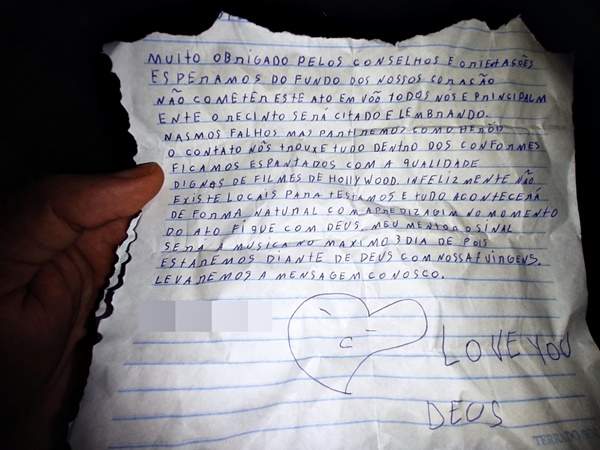 MUITO OBRIGADO PELOS CONSELHOS E ORIETAÇÕES
ESPERAMOS DO FUNDO DOS NOSSOS CORAÇÃO
NÃO COMETER ESTE ATO EM VÕO TODOS NÓS E PRINCIPALM
ENTE O RECINTO SERÁ CITADO E LEMBRANDO.
NASMOS FALHOS MAS PARTIREMOS COMO HERÓI
O CONTATO NÔS TROUXE TUDO DENTRO DOS CONFORMES
FICAMOS ESPANTADOS COM A QUALIDADE
DIGNAS DE FILMES DE HOLLYWOOD. INFELIZMENTE NÃO
EXISTE LOCAIS PARA TESTAMOS E TUDO ACONTECERÁ
DE FORMA NATURAL COM APREDIZAGIM NO MOMENTO
DO ATO FIQUE COM DEUS, MEU MENTOR O SINAL
SERÁ A MUSICA NO MAXIMO 3 DIA DE POIS
ESTAREMOS DIANTE DE DEUS COM NOSSA 7 VIRGENS.
LEVAREMOS A MENSAGEM CONOSCO.
LOVE YOU
DEUS